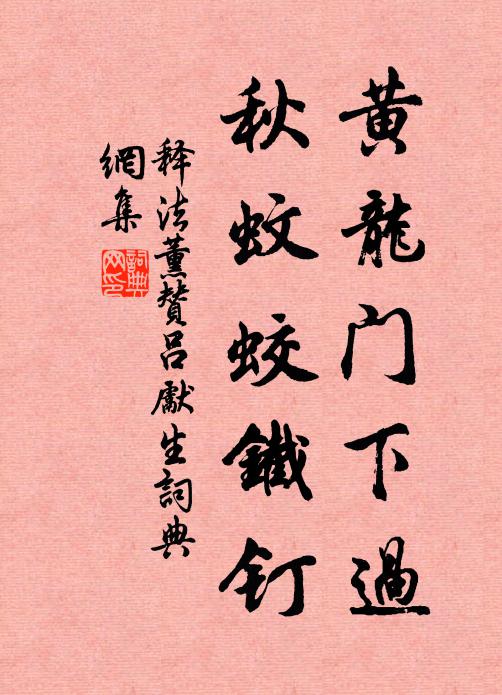 黄龍门下過
秋蚊蛟鐵钉
释法薰贊吕獻生詞典
網集
詞典
网印